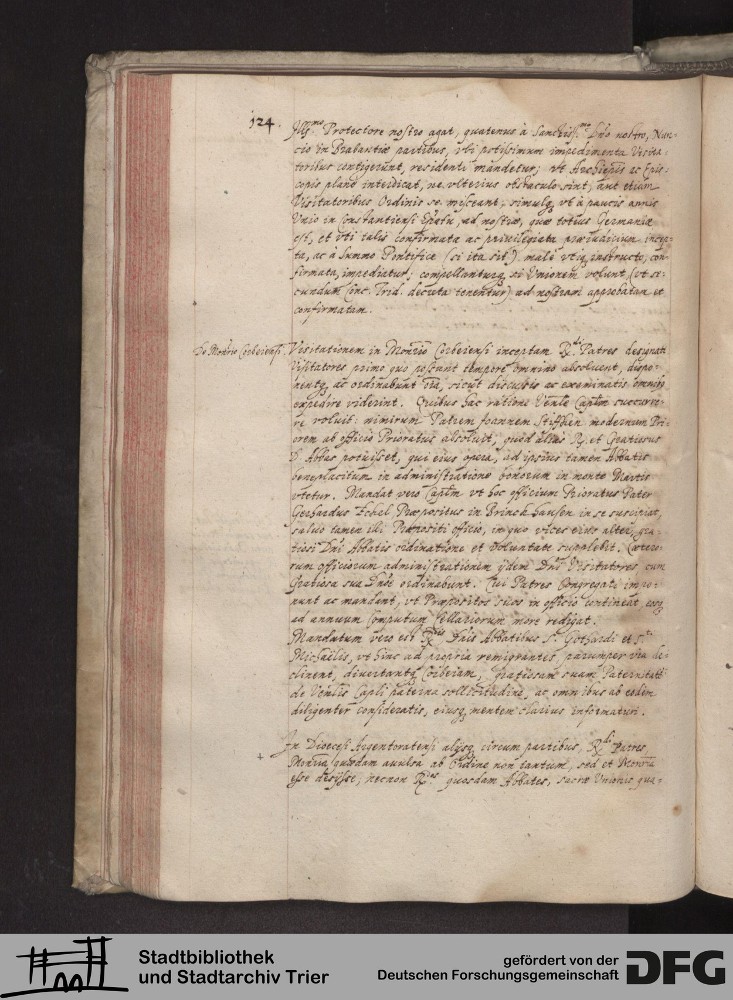 124.
Ill.mo Protectore nostro agat, quatenus à Sanctiss.mo Dno nostro, Nun-
cio in Brabantiæ partibus, vti potissimum impedimenta Visita-
toribus contigerunt, residenti mandetur; vt Archiepis ac Epis-
copis planè interdicat, ne vlterius obstaculo sint, aut etiam
Visitatoribus Ordinis se misceant; simulq, vt à paucis annis
Vnio in Constantiensi Epatu, ad nostræ, quæ totius Germaniæ
est, et vti talis confirmata ac priuilegiata præiudicium incep-
ta, ac à Summo Pontifice (si ita sit) malè vtiq instructo, con-
firmata, impediatur; compellanturq, si Vnionem volunt (vt se-
cundum Conc. Trid. decreta tenentur) ad nostram approbatam et
confirmatam.
De Monrio Corbeiensi.
Visitationem in Monrio Corbeiensi inceptam R.di Patres designati
Visitatores primo quo possunt tempore omninò absoluent, dispo-
nentq, ac ordinabunt ita, sicut discussis ac examinatis omnibus
expedire viderint. Quibus hac ratione Venle Capitm succurre-
re voluit: nimirum Patrem Joannem Stiffken modernum Pri-
orem ab officio Prioratus absoluit, quod aliàs R. et Gratiosus
D. Abbas potuisset, qui eius opera, ad ipsius tamen Abbatis
beneplacitum in administratione bonorum in monte Martis
vtetur. Mandat verò Capitm vt hoc officium Prioratus Pater
Gerhardus Echel Præpositus in Brinckhausen in se suscipiat,
saluo tamen illi Præpositi officio, in quo vices eius alter, gra-
tiosi Dni Abbatis ordinatione et voluntate supplebit. Cætero-
rum officiorum administrationem ijdem Dni Visitatores cum
Gratiosa sua Dnae ordinabunt. Cui Patres Congregati impo-
nunt ac mandant, vt Præpositos suos in officio contineat, eosq
ad annuum Computum Cellariorum more redigat.
Mandatum verò est R.dis Dnis Abbatibus S. Gothardi et S.ti
Michaëlis, vt hinc ad propria remigrantes, parumper via de-
clinent, diuertantq Corbeiam, gratiosam suam Paternitatem
de Venlis Capli paterna sollicitudine, ac omnibus ab eodem
diligenter consideratis, eiusq mentem clarius informaturi.
+
In Diœcesi Argentoratensi alijsq circum partibus, R.di Patres,
Monria quædam auulsa ab Ordine non tantum, sed et Monria
esse desijsse; necnon R.dos quosdam Abbates, sacræ Vnionis qua-
Stadtbibliothek
und Stadtarchiv Trier
gefördert von der
Deutschen Forschungsgemeinschaft
DFG